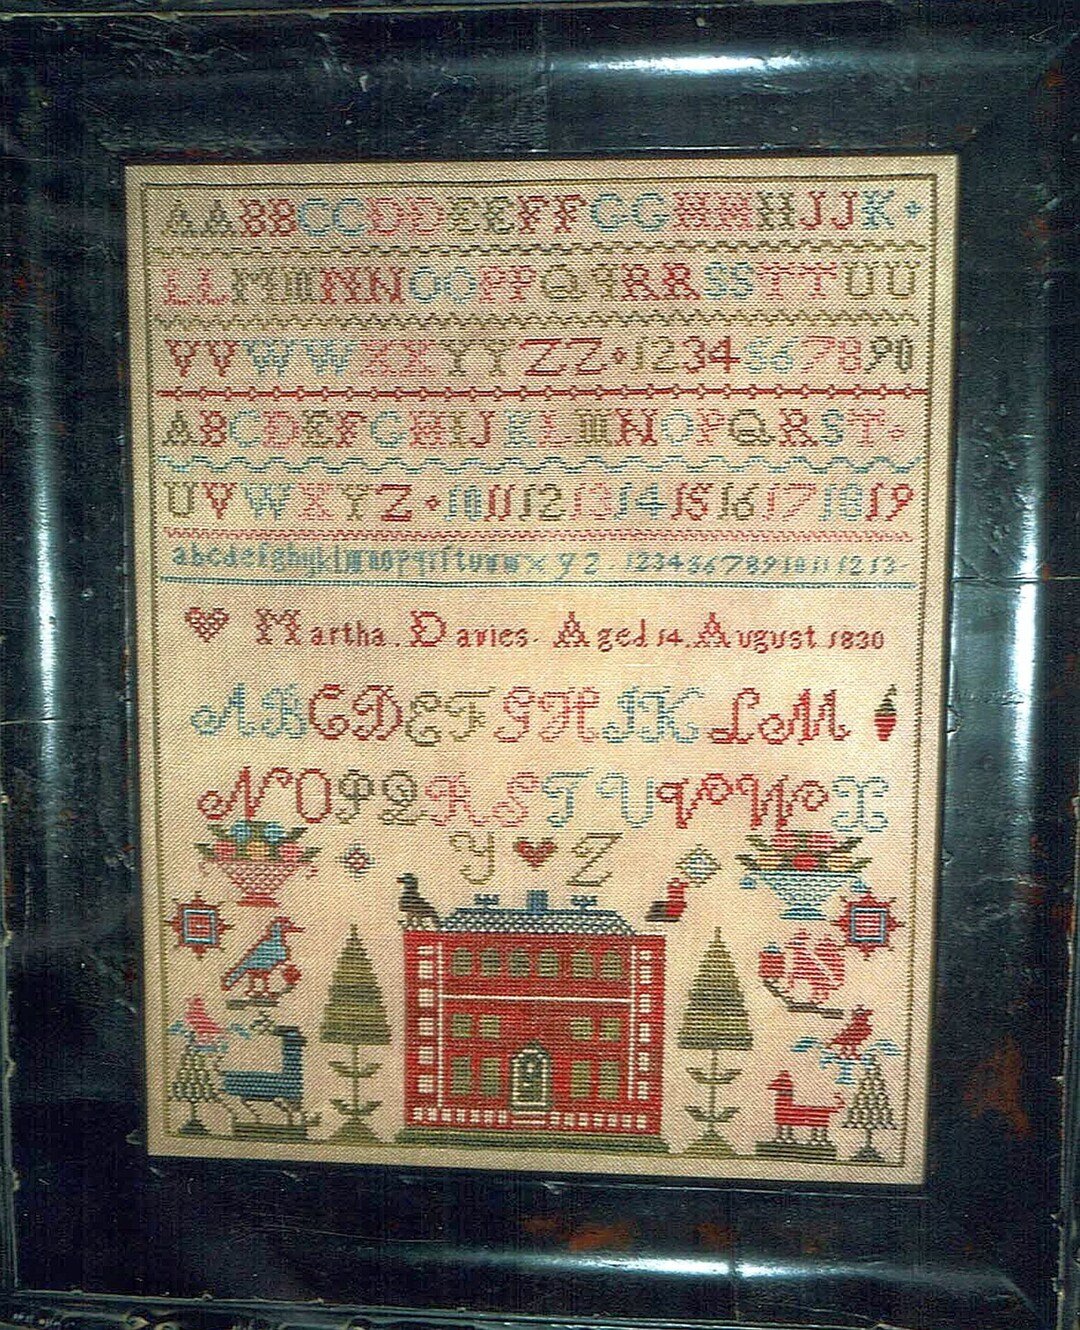 AABBCCDDEEFFGGHHIJJK
LLMMNNOOPPQqRRSSTTUU
VVWWXXYYZZ 1234567890
ABCDEFGHIJKLMNOPQRST
UVWXYZ 10 11 12 13 14 15 16 17 18 19
abcdefghijklmnopqrſtuvwxyz . 12345678910 11 12 13
Martha . Davies . Aged 14 . August 1830
ABCDEFGHIKLM
NOPQRSTUVWX
YZ